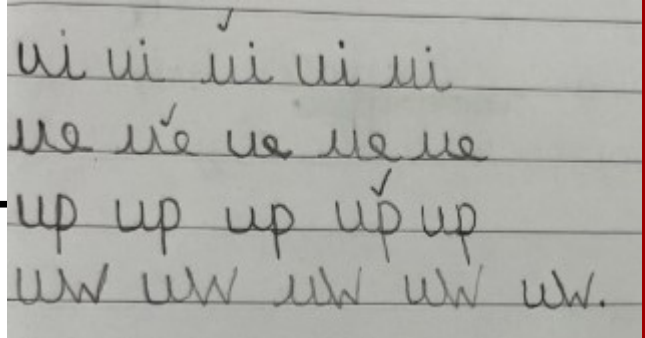 ui ui ui ui ui
ue ue ue ue ue
up up up up up
uw uw uw uw uw.